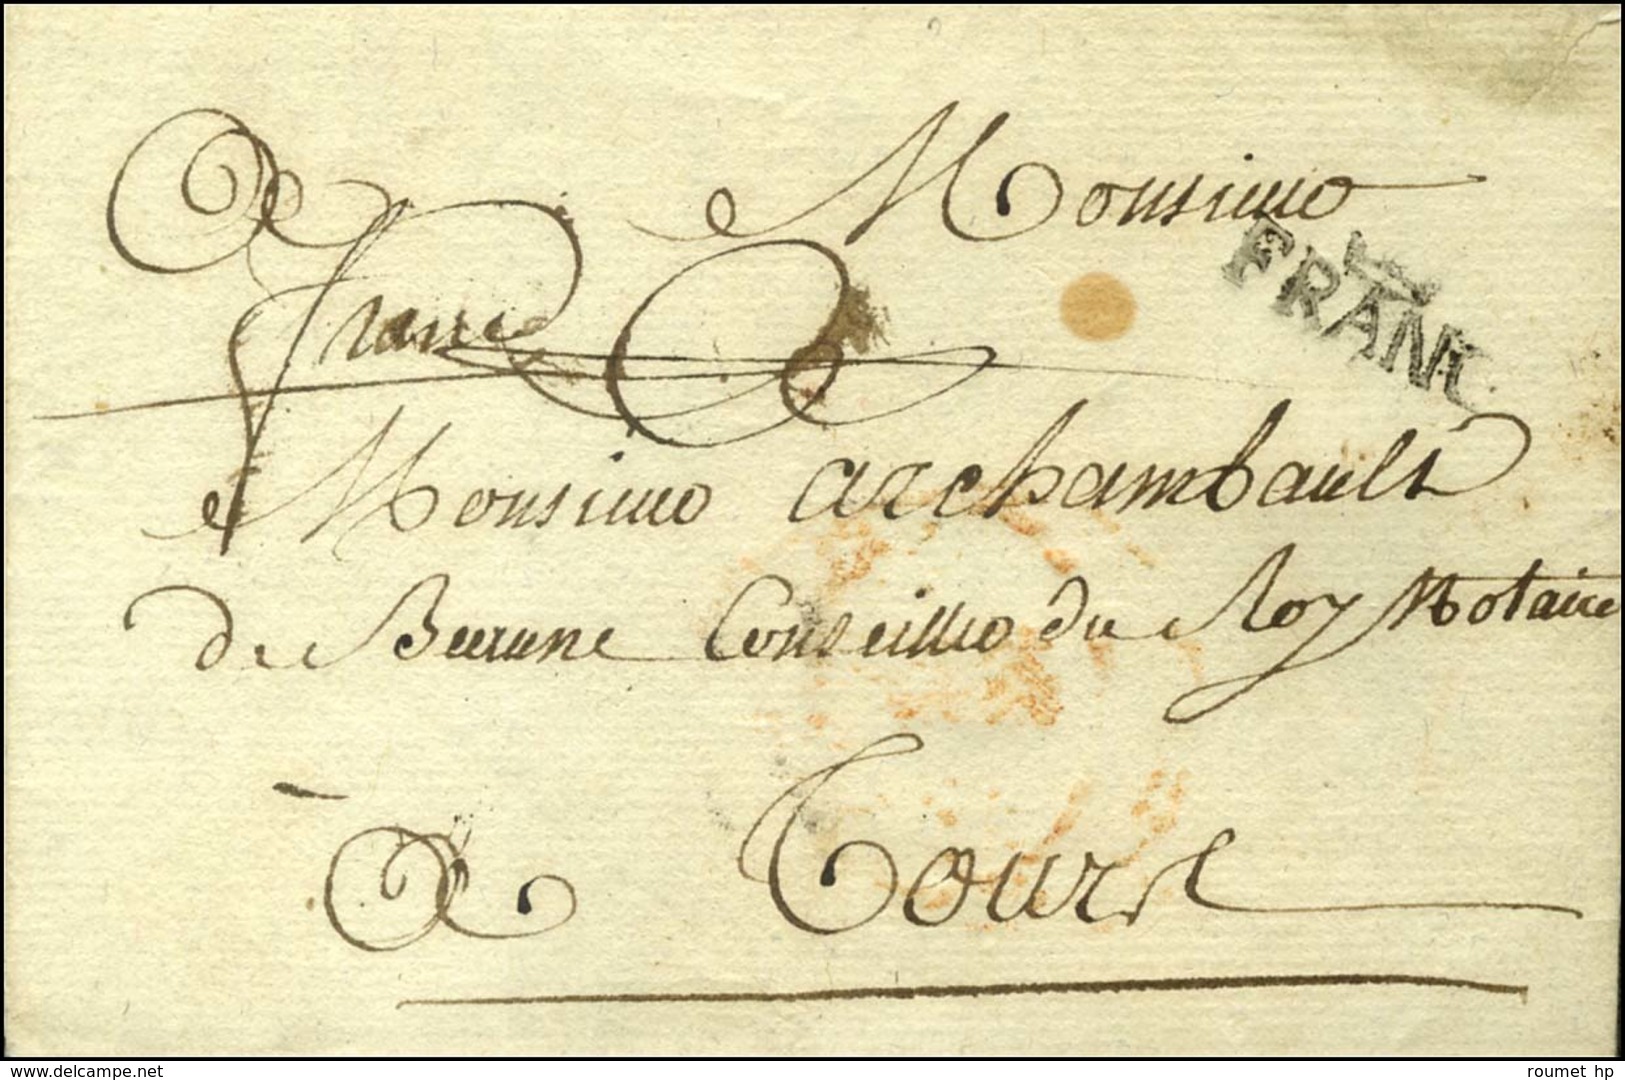 A Monsieur
FRANC
franc
Monsieur archambault
de Beaune Conseiller du Roy Notaire
A Tours
www.delcampe.net
roumet hp